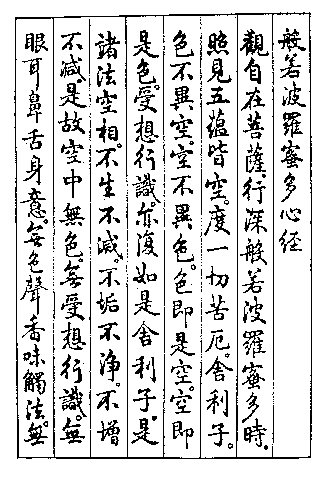 般若波羅蜜多心経
觀自在菩薩。行深般若波羅蜜多時。
照見五蘊皆空。度一切苦厄。舎利子。
色不異空。空不異色。色即是空。空即
是色。受想行識。亦復如是舎利子。是
諸法空相。不生不滅。不垢不浄。不増
不减。是故空中無色。無受想行識。無
眼耳鼻舌身意。無色聲香味觸法。無